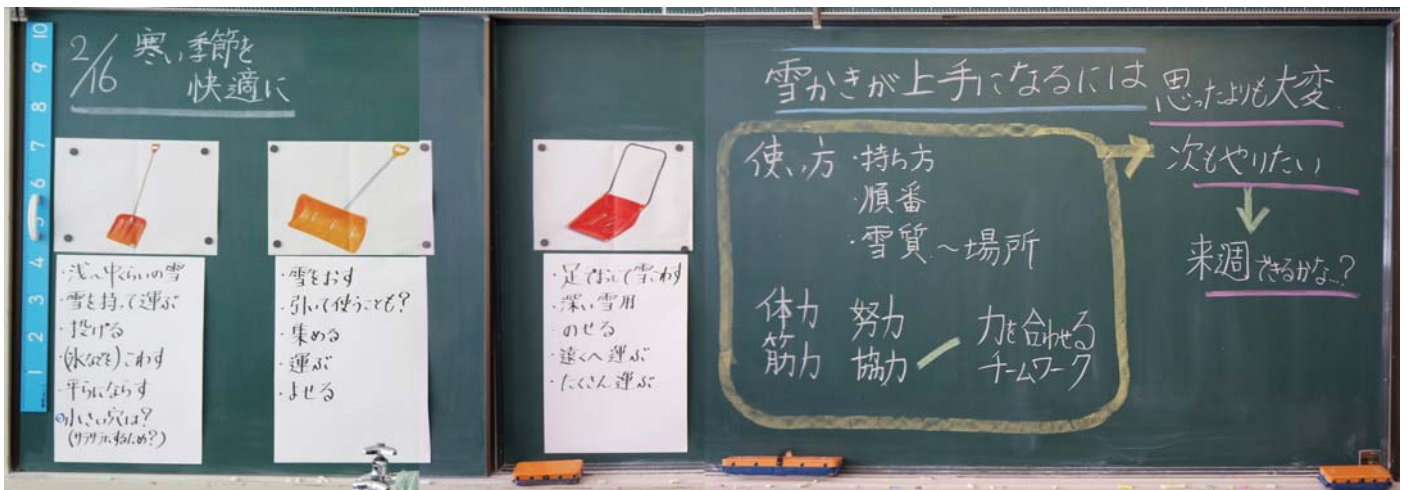 2/16 寒い季節を
快適に
10
9
8
7
6
5
4
3
2
1
・浅い〜中くらいの雪
・雪を持って運ぶ
・投げる
・(氷などを)こわす
・平らにならす
小さい穴は?
(サラサラにするため?)
・雪をおす
・引いて使うことも?
・集める
・運ぶ
・よせる
・足でおして雪こわす
・深い雪用
のせる
・遠くへ運ぶ
・たくさん運ぶ
雪かきが上手になるには
使い方・持ち方
・順番
・雪質〜場所
体力 努力
筋力 協力
力を合わせる
チームワーク
思ったよりも大変
次もやりたい
来週できるかな…?